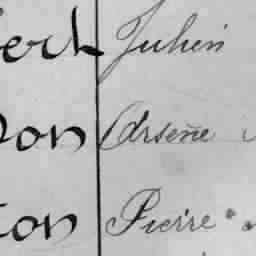 ert Julien
on Arsène
ton Pierre